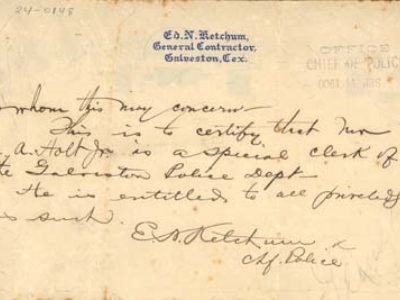 24-0148
Ed. N. Ketchum,
General Contractor,
Galveston, Tex.
OFFICE
CHIEF OF POLIC
whom this may concern
This is to certify that
A. Holt Jr. is a special clerk of
Galveston Police Dept
He is entitled to all
as such.
E. N. Ketchum
Chf. Police